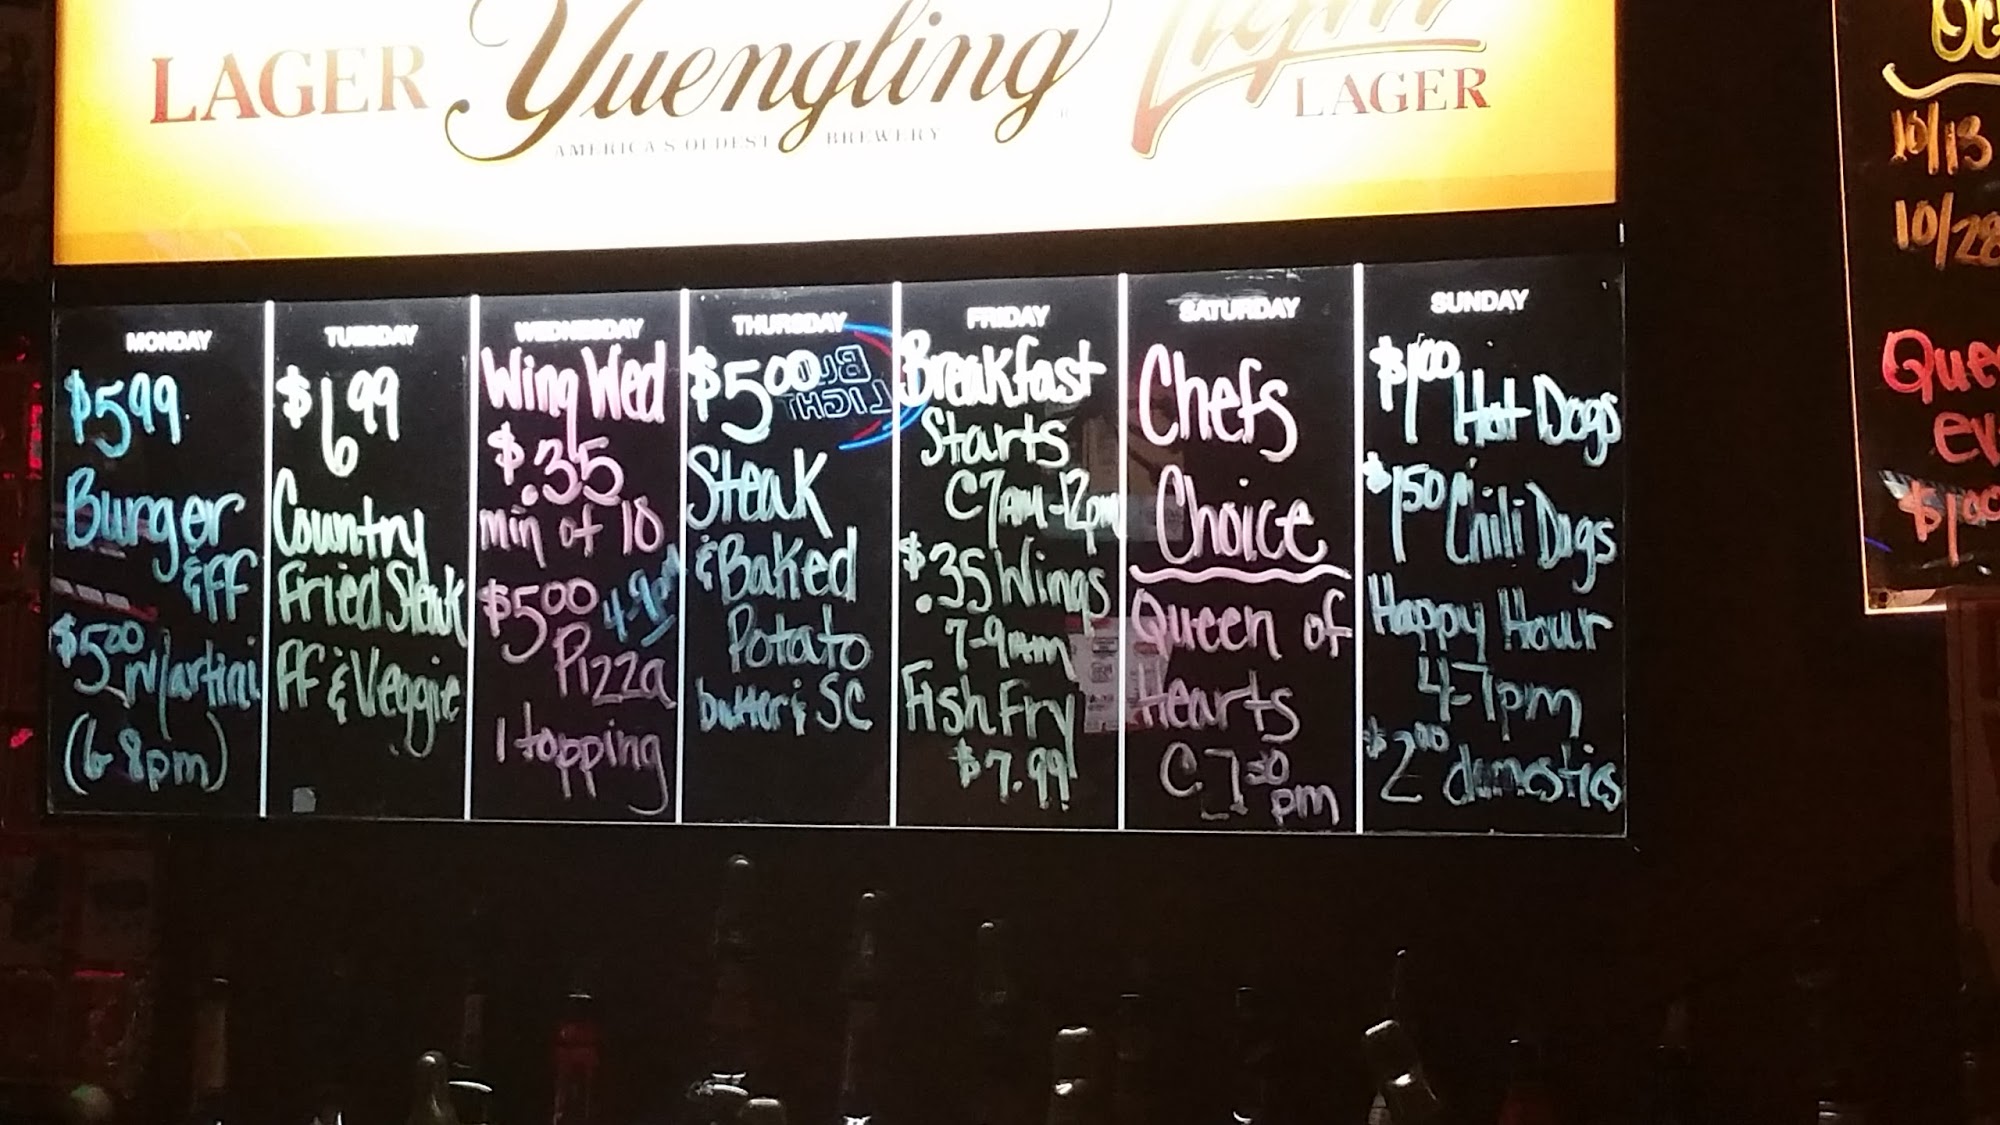 LAGER Yuengling Light LAGER
AMERICA'S OLDEST BREWERY
MONDAY
$5.99
Burger
& FF
$5.00
Martini
(6-8pm)
TUESDAY
$6.99
Country
Fried Steak
FF & Veggie
WEDNESDAY
Wing Wed
$.35
min of 10
$5.00
Pizza
1 topping
THURSDAY
$5.00
BUD
LIGHT
Steak
& Baked
Potato
butter & SC
FRIDAY
Breakfast
Starts
@ 7AM-12pm
$.35 Wings
7-9am
Fish Fry
$7.99
SATURDAY
Chefs
Choice
Queen of
Hearts
@ 7:30
pm
SUNDAY
$1.00 Hot Dogs
$1.50 Chili Dogs
Happy Hour
4-7pm
$2.00 domestics
10/13
10/28